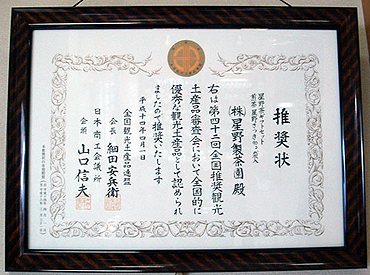 推奨状
星野茶ギフトセット
(株)星野製茶園殿
右は第四十二回全国推奨観光
土産品審査会において全国的に
優秀な観光土産品として認められ
ましたので推奨いたします
平成十四年四月一日
全国観光土産品連盟
会長 細田安兵衛
日本商工会議所
会頭 山口信夫